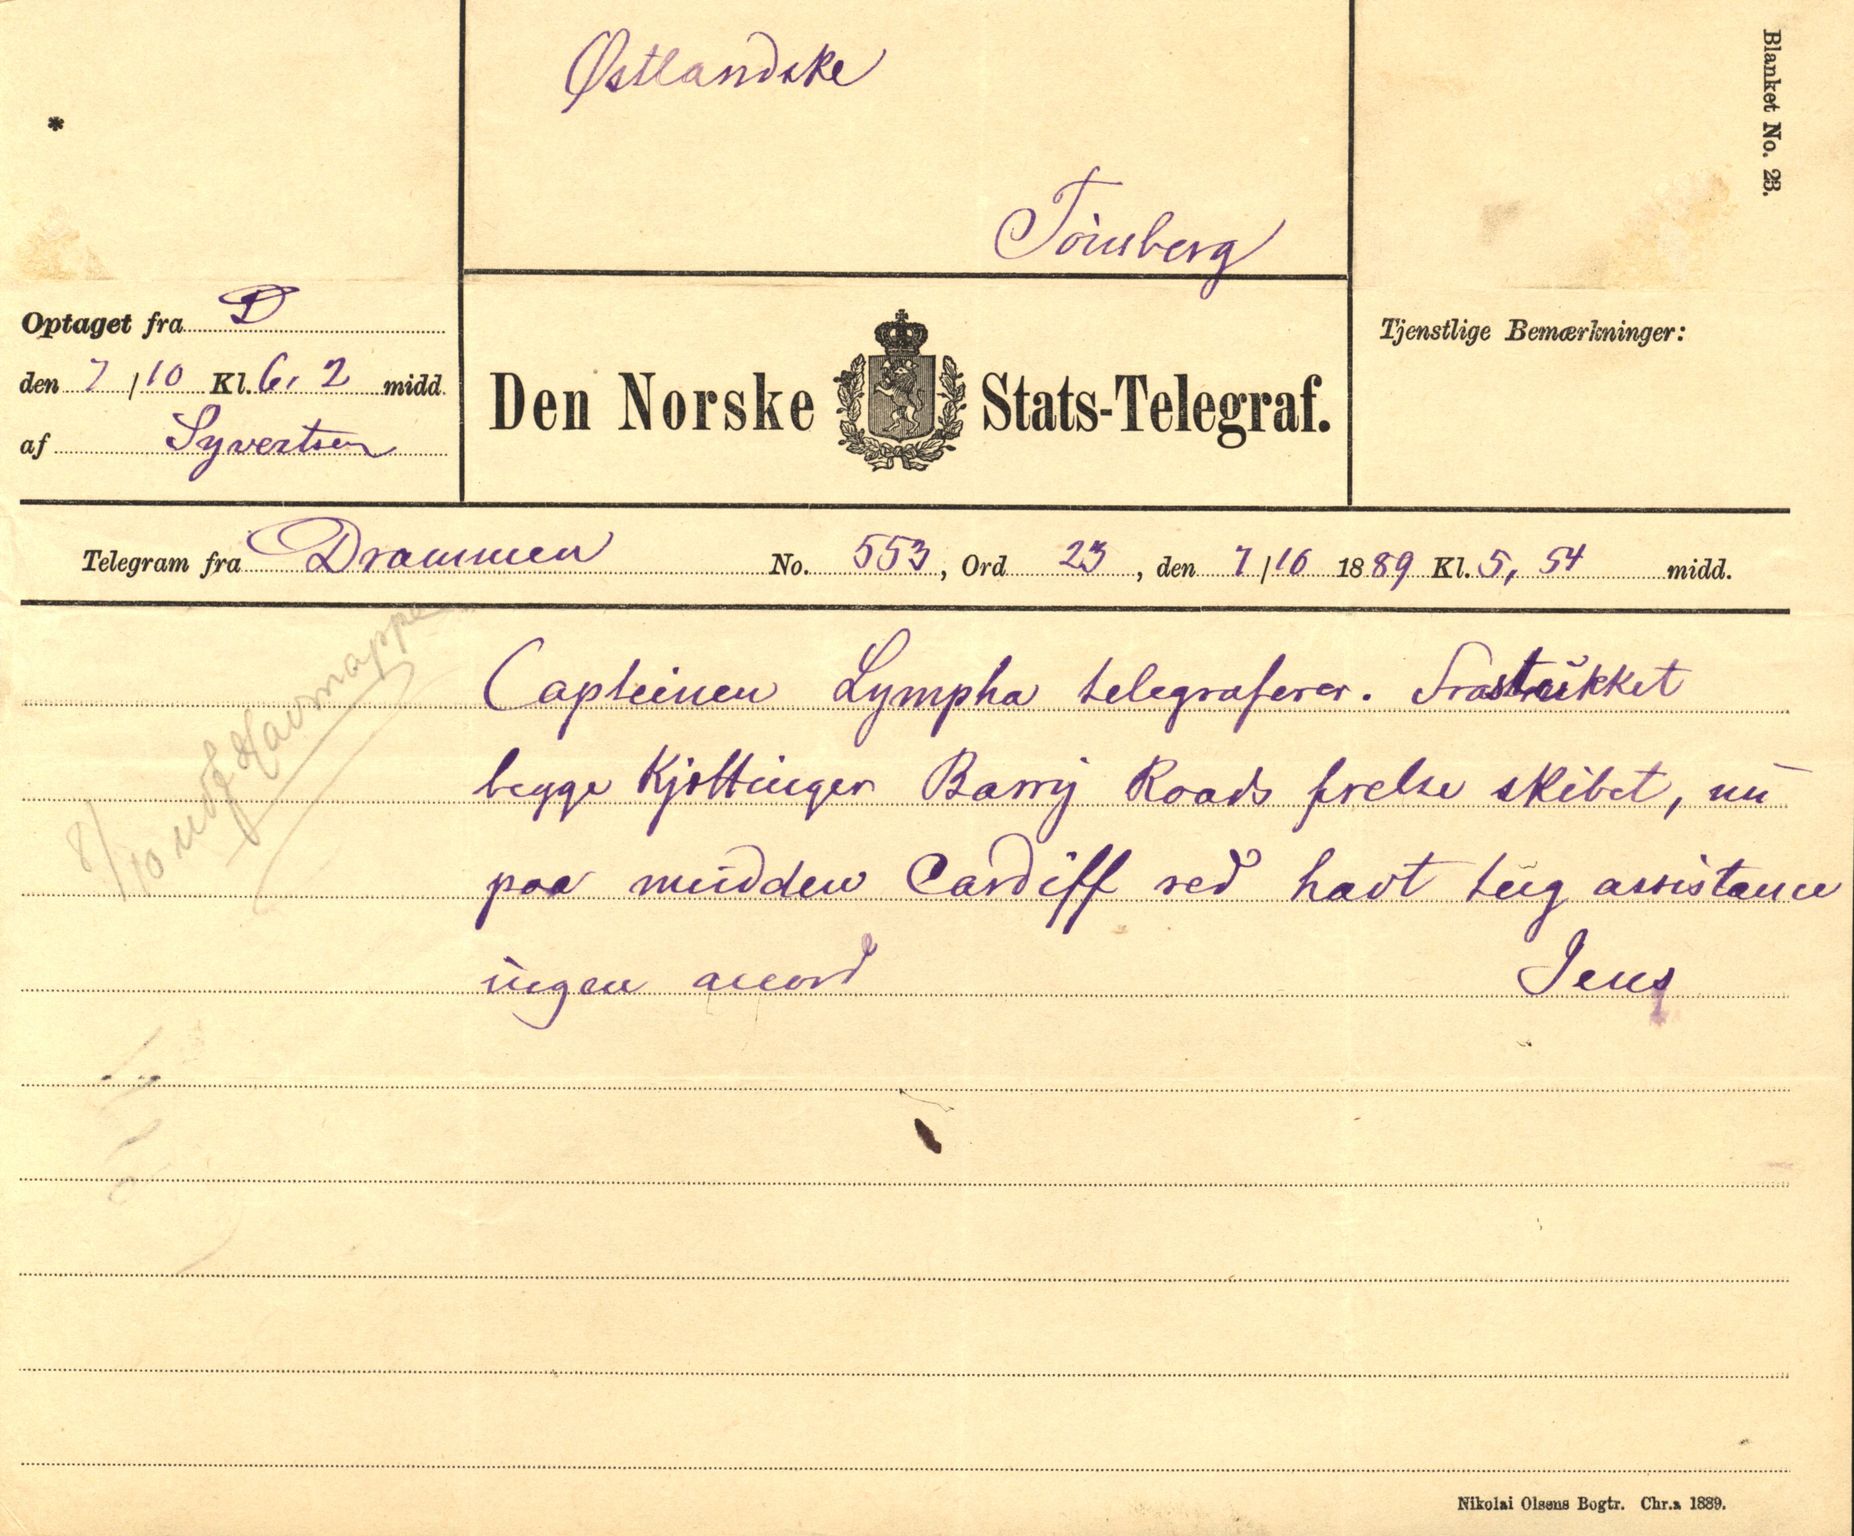 Østlandske
Blanket No. 23.
*
Tönsberg
Optaget fra D
den 7/10 Kl. 6,2 midd.
af Syvertsen
Den Norske Stats-Telegraf.
Tjenstlige Bemærkninger:
Telegram fra Drammen No. 553, Ord 23, den 7/10 1889 Kl. 5,54 midd.
Capteinen Lympha telegraferer. Frastükket
begge Kjettinger Barry Roads frelse skibet, nu
paa mudden Cardiff red havt tüg assistance
ingen accord Jens
8/10 Havmappe
Nikolai Olsens Bogtr. Chr.a 1889.